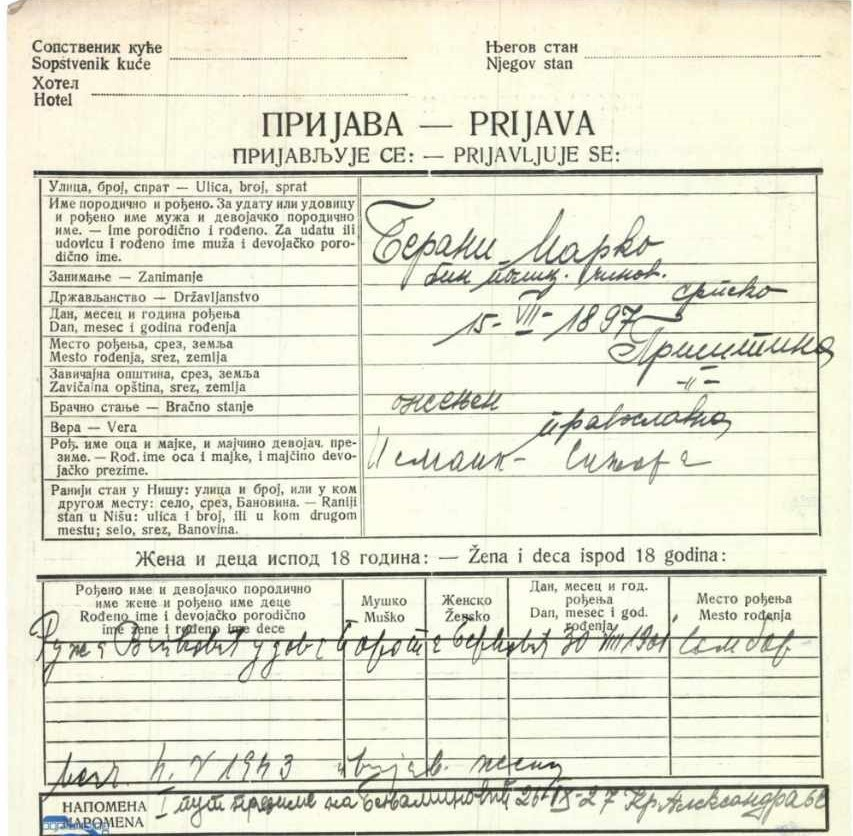 Сопственик куће
Sopstvenik kuće
Његов стан
Njegov stan
Хотел
Hotel
ПРИЈАВА — PRIJAVA
ПРИЈАВЉУЈЕ СЕ: — PRIJAVLJUJE SE:
Улица, број, спрат — Ulica, broj, sprat
Име породично и рођено. За удату или удовицу
и рођено име мужа и девојачко породично
име. — Ime porodično i rođeno. Za udatu ili
udovicu i rođeno ime muža i devojačko poro-
dično ime.
Берани Марко
Занимање — Zanimanje
бив. полиц. чинов.
Држављанство — Državljanstvo
српско
Дан, месец и година рођења
Dan, mesec i godina rođenja
15-VII-1897
Место рођења, срез, земља
Mesto rođenja, srez, zemlja
Приштина
Завичајна општина, срез, земља
Zavičajna opština, srez, zemlja
-"-
Брачно стање — Bračno stanje
ожењен
Вера — Vera
православна
Рођ. име оца и мајке, и мајчино девојач. пре-
зиме. — Rođ. ime oca i majke, i majčino devo-
jačko prezime.
Ранији стан у Нишу: улица и број, или у ком
другом месту: село, срез, Бановина. — Raniji
stan u Nišu: ulica i broj, ili u kom drugom
mestu; selo, srez, Banovina.
Жена и деца испод 18 година: — Žena i deca ispod 18 godina:
Рођено име и девојачко породично
име жене и рођено име деце
Rođeno ime i devojačko porodično
ime žene i rođeno ime dece
Мушко
Muško
Женско
Žensko
Дан, месец и год.
рођења
Dan, mesec i god.
rođenja
Место рођења
Mesto rođenja
Ружа удова 30 VIII 1901 Сомбор
V 1943
НАПОМЕНА
NAPOMENA
I пут презиме на Бењаминовић 26-IX-27 Кр. Александра 65